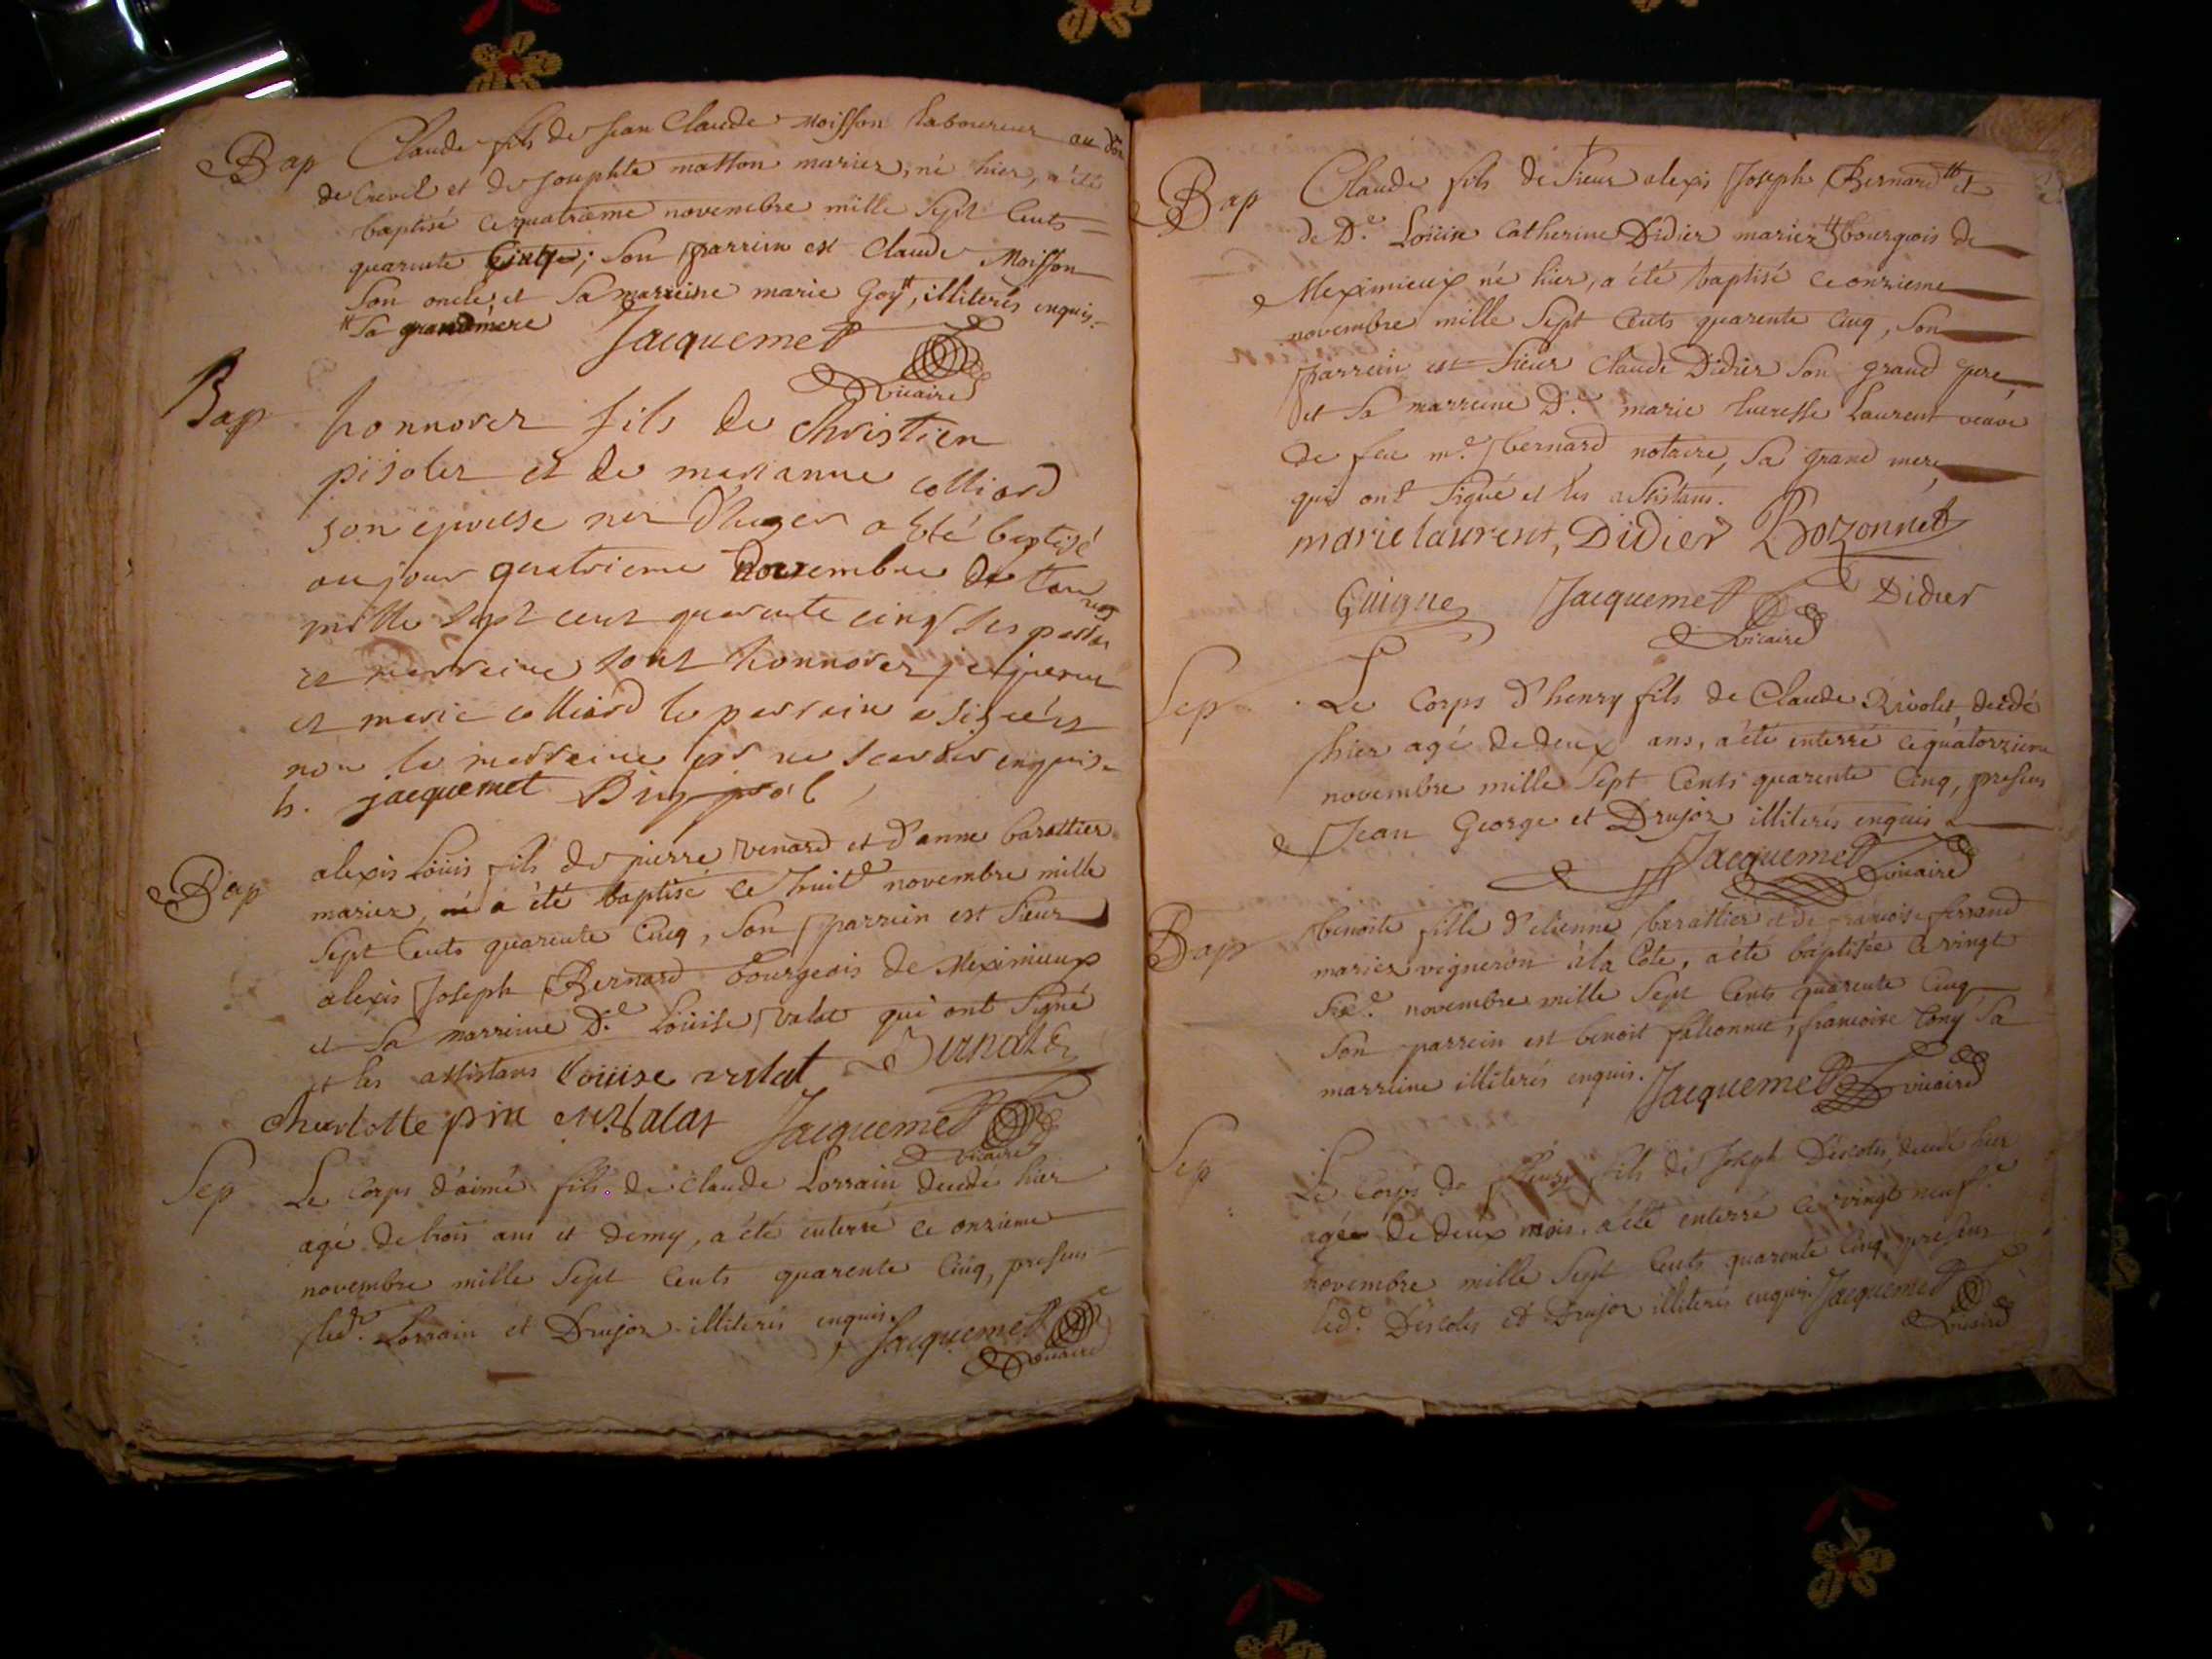 Bap Claude fils de Jean Claude Moisson laboureur au
de Crevel et de Josephte matton mariez, né hier, a été
baptisé ce quatrieme novembre mille Sept Cents
quarente Cinq; Son parrein est Claude Moisson
Son oncle, et Sa marreine marie Goy #, illiterés enquis.
# Sa grandmere Jacquemet
vicaire
Bap honnorez fils de Christien
pisolez et de marianne colliard
son epouse nez a été baptisé
au jour quatrieme novembre de l'an
mille sept cent quarente cinq ses parrin
et marreine sont honnorez jacquemet
et marie colliard le parrain a signé et
non la marraine pr ne scavoir enquise
h. jacquemet
Bap alexis Loüis fils de pierre venard et d'anne barattier
mariez, a été baptisé ce huit.e novembre mille
Sept Cents quarente Cinq, Son parrein est Sieur
alexis Joseph Bernard bourgeois de Meximieux
et Sa marreine D.e Loüise valat qui ont Signé
et les assistans Loüise valat Bernard
Charlotte pin Jacquemet
vicaire
Sep Le Corps d'aimé fils de Claude Lorrain decedé hier
agé de trois ans et demy, a été enterré ce onzieme
novembre mille Sept Cents quarente Cinq, presens
led.t Lorrain et Drujon illiterés enquis. Jacquemet
vicaire
Bap Claude fils de Sieur alexis Joseph Bernard # et
de D.e Loüise Catherine Didier mariez # bourgeois de
Meximieux né hier, a été baptisé ce onzieme
novembre mille Sept Cents quarente Cinq, Son
parrein est Sieur Claude Didier Son grand pere
et Sa marreine D.e marie lucresse Laurent veuve
de feu m.e bernard notaire, Sa grand mere,
qui ont Signé et les assistans.
marie laurent, Didier Bozonnet
Guigue Jacquemet Didier
vicaire
Sep Le Corps d'henry fils de Claude Rivolet, decedé
hier agé de deux ans, a été enterré ce quatorzieme
novembre mille Sept Cents quarente Cinq, presens
Jean George et Drujon illiterés enquis
Jacquemet vicaire
Bap benoite fille d'etienne barattier et de francoise ferrand
mariez vigneron à la Côte, a été baptisée ce vingt
Six.e novembre mille Sept Cents quarente Cinq
Son parrein est benoit falconnet, francoise Cony Sa
marreine illiterés enquis. Jacquemet vicaire
Sep Le Corps de fleury fils de Joseph Descotes, decedé hier
agé de deux mois, a été enterré ce vingt neuf.e
novembre mille Sept Cents quarente Cinq, presens
led.t Descotes et Drujon illiterés enquis. Jacquemet
vicaire